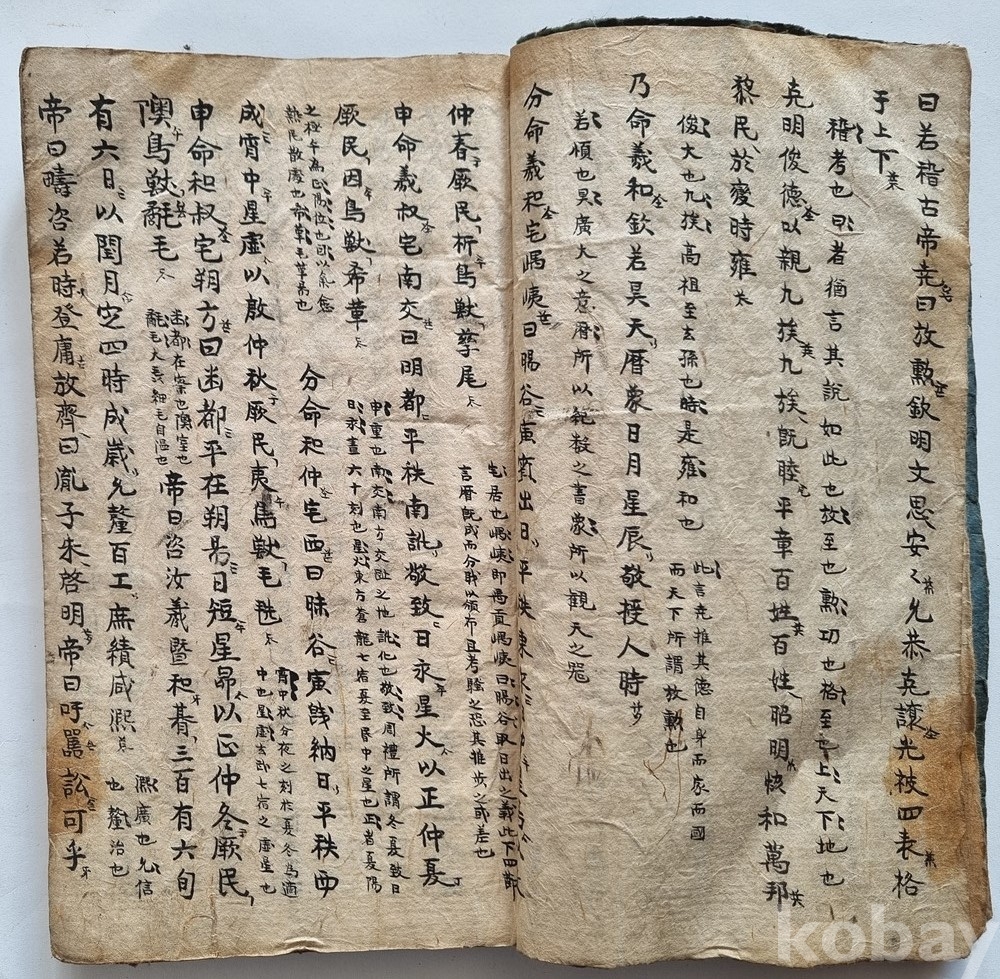 曰若稽古帝堯曰放勳欽明文思安〻允恭克讓光被四表格
于上下
稽考也曰者猶言其說如此也放至也勳功也格至也上天下地也
克明俊德以親九族九族旣睦平章百姓百姓昭明恊和萬邦
黎民於變時雍
俊大也九族高祖至玄孫也時是雍和也
此言堯推其德自身而家而國
而天下所謂放勳也
乃命羲和欽若昊天曆象日月星辰敬授人時
若順也昊廣大之意曆所以紀数之書象所以観天之器
分命羲和宅嵎峡曰暘谷寅賓出日平秩東
宅居也嵎峡即禹貢嵎峡曰暘谷取日出之義此下四節
言曆旣成而分戢以頒布且考驗之恐其推步之或差也
仲春厥民析鳥獸孳尾
申命羲叔宅南交曰明都平秩南訛敬致日永星火以正仲夏
申重也南交南方交趾之地訛化也致周禮所謂冬夏致日
日永晝六十刻也星火東方蒼龍七宿夏至昏中之星也正者夏陽
厥民因鳥獸希革
之極午為正陽位也因以氣愈
熱民散處也
分命和仲宅西曰昧谷寅餞納日平秩西
成宵中星虛以殷仲秋厥民夷鳥獸毛毨
宵中秋分夜之刻於夏冬為適
中也星虛玄武七宿之虛星也
申命和叔宅朔方曰幽都平在朔易日短星昴以正仲冬厥民
隩鳥獸氄毛
幽都在察也隩室也
帝曰咨汝羲曁和朞三百有六旬
有六日以閏月定四時成歲允釐百工庶績咸熙
熙廣也允信
也釐治也
帝曰疇咨若時登庸放齊曰胤子朱啓明帝曰吁嚚訟可乎
kobay